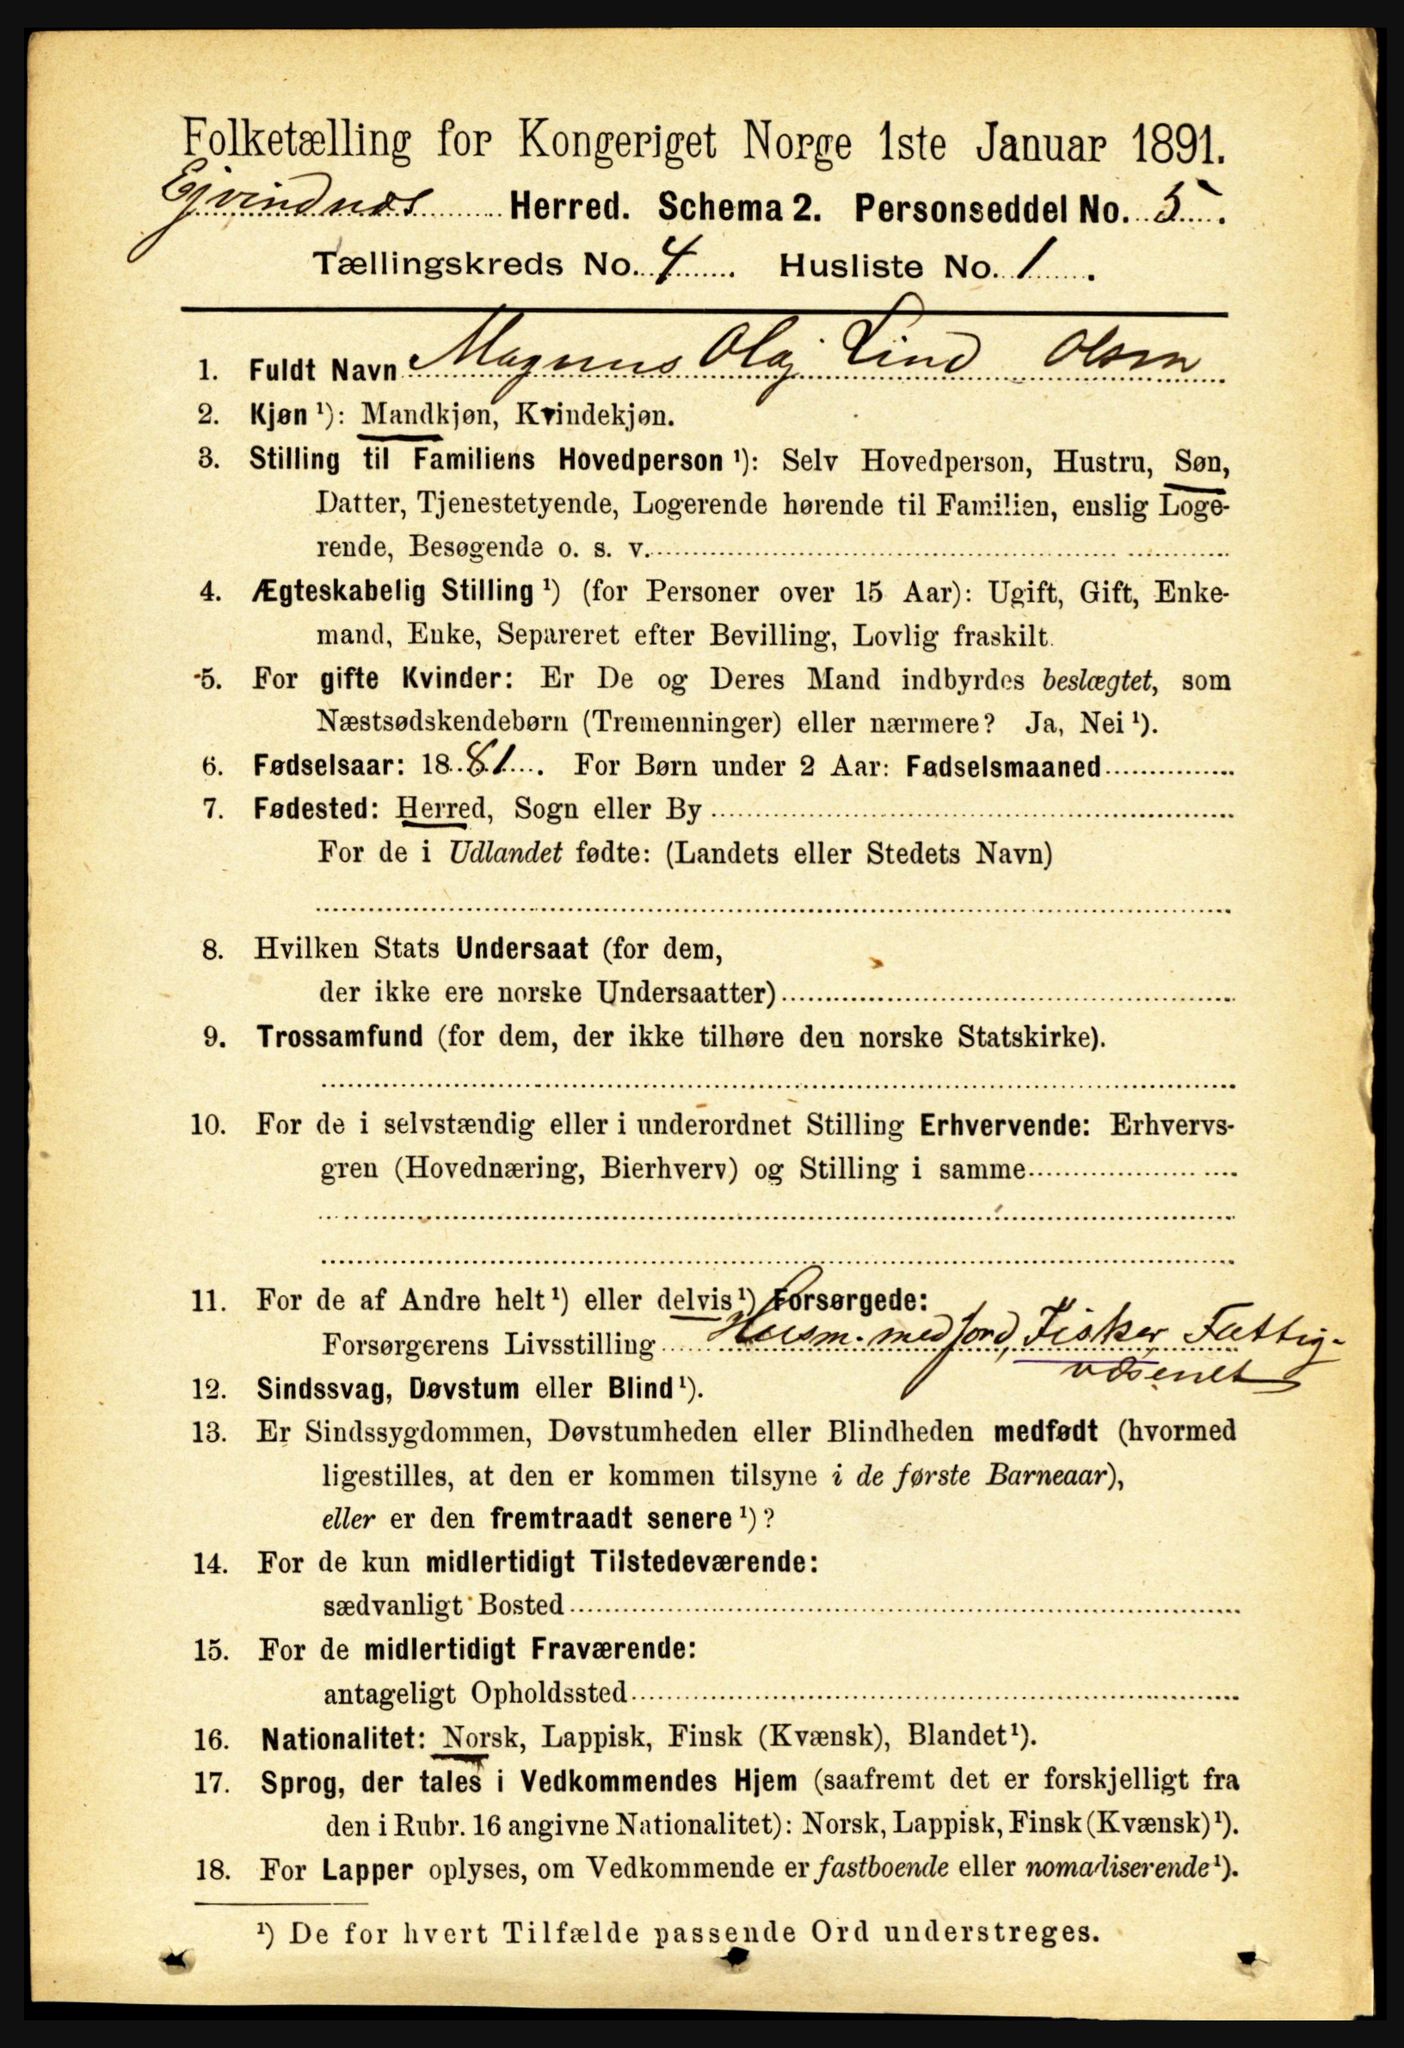 Folketælling for Kongeriget Norge 1ste Januar 1891.
Ejvindnæs Herred. Schema 2. Personseddel No. 5.
Tællingskreds No. 4. Husliste No. 1.
1. Fuldt Navn Magnus Olaj Lind Olsen
2. Kjøn ¹): Mandkjøn, Kvindekjøn.
3. Stilling til Familiens Hovedperson ¹): Selv Hovedperson, Hustru, Søn,
Datter, Tjenestetyende, Logerende hørende til Familien, enslig Loge-
rende, Besøgende o. s. v.
4. Ægteskabelig Stilling ¹) (for Personer over 15 Aar): Ugift, Gift, Enke-
mand, Enke, Separeret efter Bevilling, Lovlig fraskilt.
5. For gifte Kvinder: Er De og Deres Mand indbyrdes beslægtet, som
Næstsødskendebørn (Tremenninger) eller nærmere? Ja, Nei ¹).
6. Fødselsaar: 1881. For Børn under 2 Aar: Fødselsmaaned
7. Fødested: Herred, Sogn eller By
For de i Udlandet fødte: (Landets eller Stedets Navn)
8. Hvilken Stats Undersaat (for dem,
der ikke ere norske Undersaatter)
9. Trossamfund (for dem, der ikke tilhøre den norske Statskirke).
10. For de i selvstændig eller i underordnet Stilling Erhvervende: Erhvervs-
gren (Hovednæring, Bierhverv) og Stilling i samme
11. For de af Andre helt ¹) eller delvis ¹) Forsørgede:
Forsørgerens Livsstilling Husm. med Jord, Fisker, Fattig-
væsenet
12. Sindssvag, Døvstum eller Blind ¹).
13. Er Sindssygdommen, Døvstumheden eller Blindheden medfødt (hvormed
ligestilles, at den er kommen tilsyne i de første Barneaar),
eller er den fremtraadt senere ¹)?
14. For de kun midlertidigt Tilstedeværende:
sædvanligt Bosted
15. For de midlertidigt Fraværende:
antageligt Opholdssted
16. Nationalitet: Norsk, Lappisk, Finsk (Kvænsk), Blandet ¹).
17. Sprog, der tales i Vedkommendes Hjem (saafremt det er forskjelligt fra
den i Rubr. 16 angivne Nationalitet): Norsk, Lappisk, Finsk (Kvænsk) ¹).
18. For Lapper oplyses, om Vedkommende er fastboende eller nomadiserende ¹).
¹) De for hvert Tilfælde passende Ord understreges.